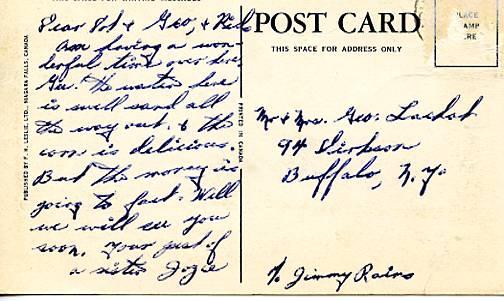 Dear Dot & Geo, & Kids
Am having a won-
derful time over here.
Geo. the water here
is swell sand all
the way out. & the
corn is delicious.
But the money is
going to fast. Well
we will see you
soon. Your just of
a sister Jozie
PUBLISHED BY F. H. LESLIE, LTD., NIAGARA FALLS, CANADA
PRINTED IN CANADA
POST CARD
THIS SPACE FOR ADDRESS ONLY
PLACE
STAMP
HERE
Mr & Mrs. Geo:
94
Buffalo, N.Y.
% Jimmy Rains